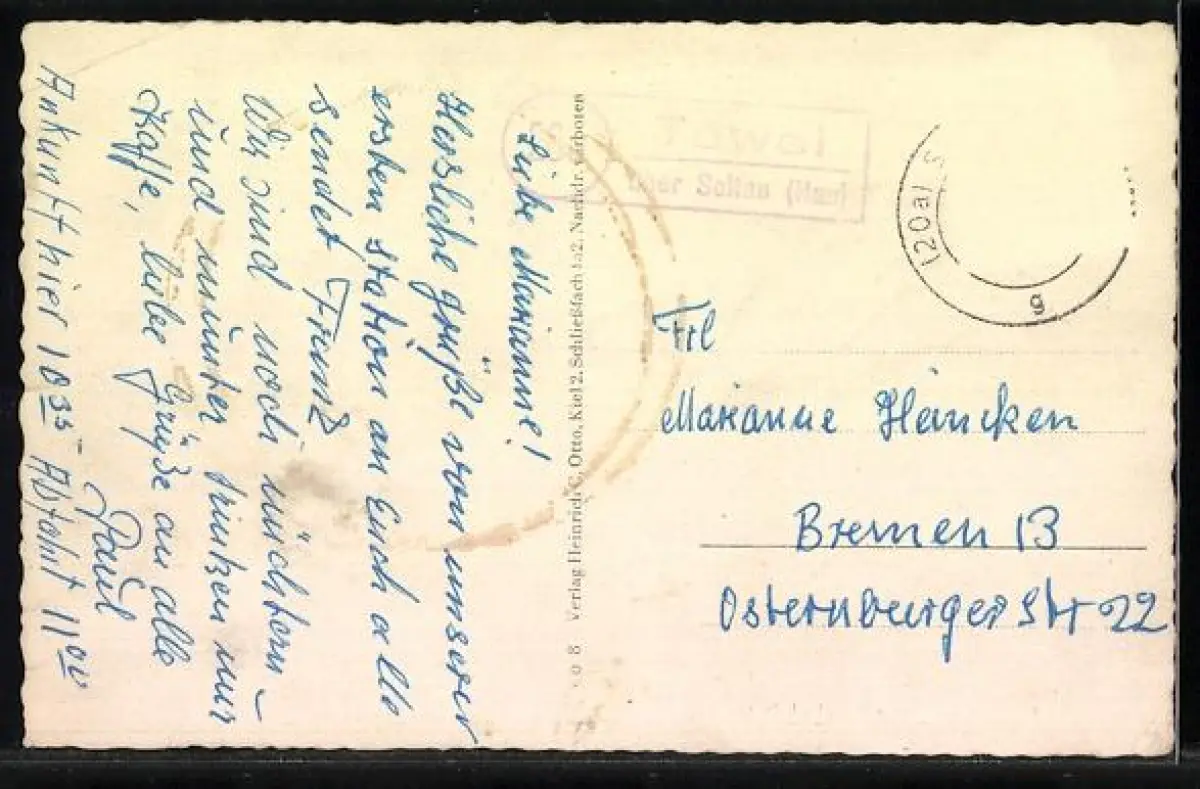 Liebe Marianne!
Herzliche Grüße von unserer
ersten Station an Euch alle
sendet Franz
Wir sind noch nüchtern
und munter trinken nur
Kaffe, liebe Grüße an alle
Paul
Ankunft hier 10 35 Abfahrt 11 00
Verlag Heinrich C. Otto, Kiel 2. Schließfach 1a2. Nachdr. verboten
über Soltau (Han)
(20a) S
g
Frl
Marianne Heincken
Bremen 13
Osternburger Str 22